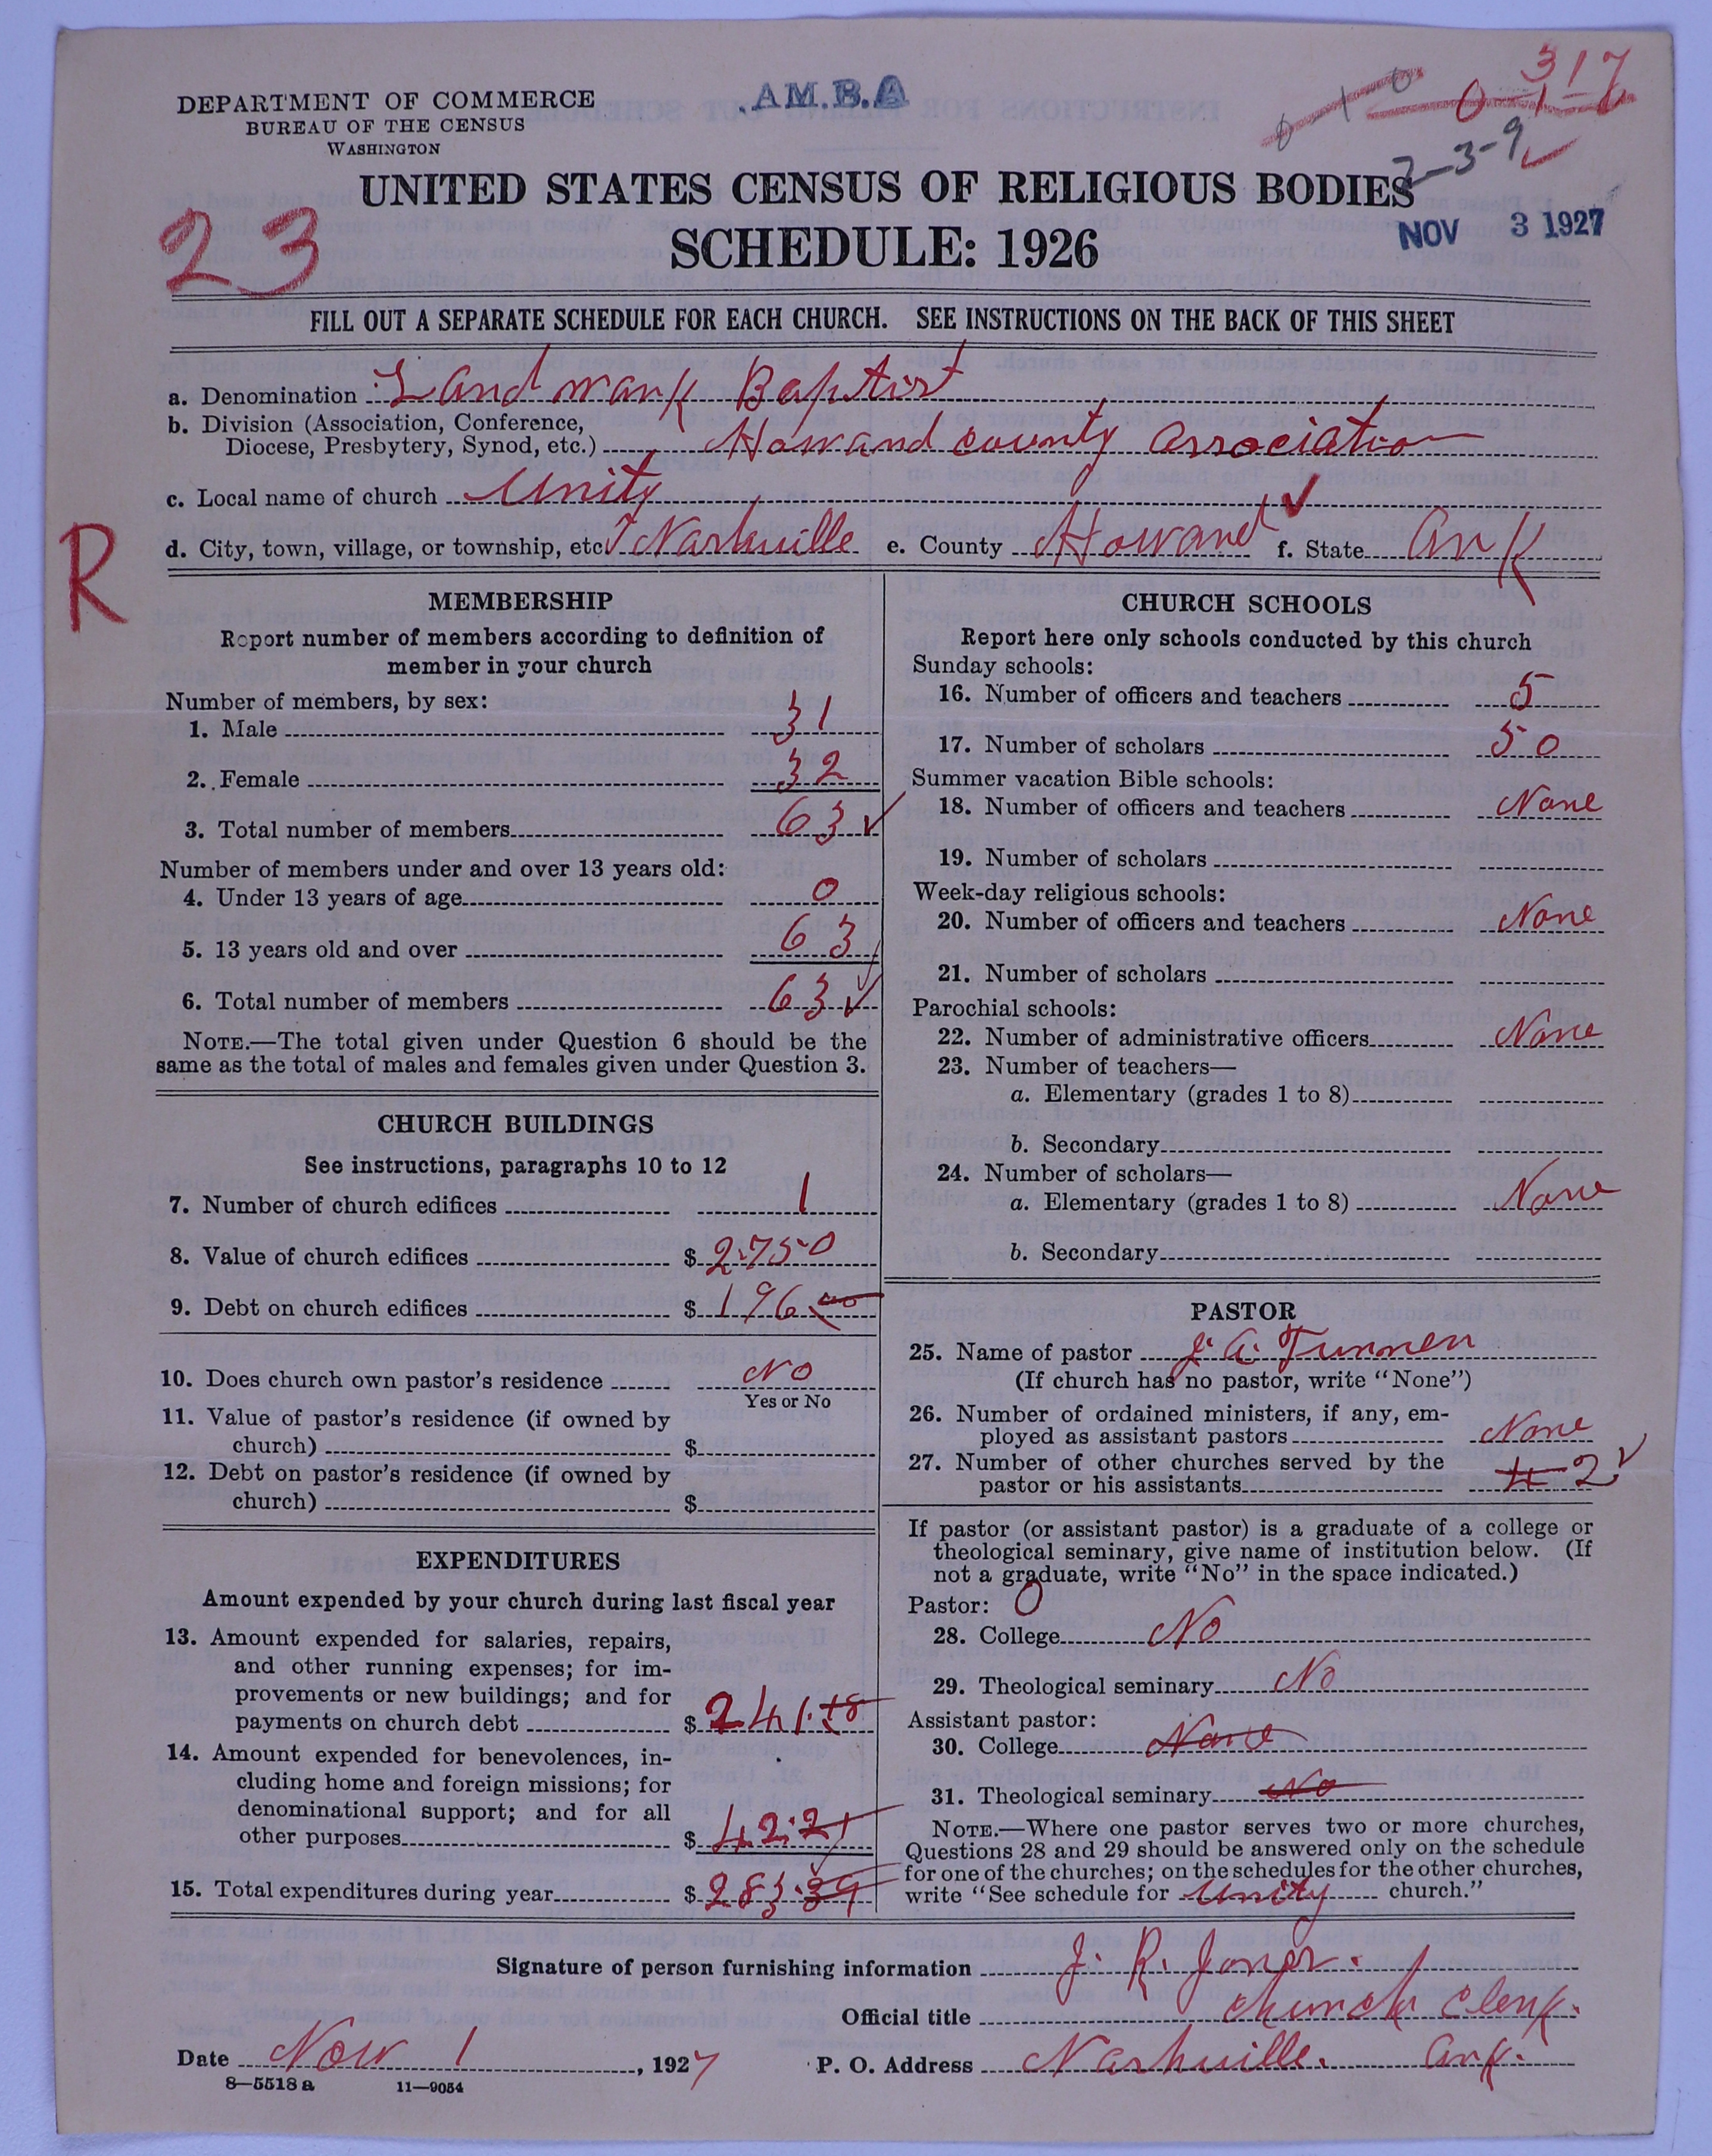 DEPARTMENT OF COMMERCE
BUREAU OF THE CENSUS
WASHINGTON
A.M.B.A
317
2-3-9
UNITED STATES CENSUS OF RELIGIOUS BODIES
SCHEDULE: 1926
NOV 3 1927
23
FILL OUT A SEPARATE SCHEDULE FOR EACH CHURCH. SEE INSTRUCTIONS ON THE BACK OF THIS SHEET
a. Denomination Landmark Baptist
b. Division (Association, Conference,
Diocese, Presbytery, Synod, etc.) Howard county Association
c. Local name of church Unity
d. City, town, village, or township, etc. Nashville e. County Howard f. State Ark
R
MEMBERSHIP
Report number of members according to definition of
member in your church
Number of members, by sex:
1. Male 31
2. Female 32
3. Total number of members 63
Number of members under and over 13 years old:
4. Under 13 years of age 0
5. 13 years old and over 63
6. Total number of members 63
NOTE.—The total given under Question 6 should be the
same as the total of males and females given under Question 3.
CHURCH BUILDINGS
See instructions, paragraphs 10 to 12
7. Number of church edifices 1
8. Value of church edifices $ 2750
9. Debt on church edifices $ 196.00
10. Does church own pastor's residence No
Yes or No
11. Value of pastor's residence (if owned by
church) $
12. Debt on pastor's residence (if owned by
church) $
EXPENDITURES
Amount expended by your church during last fiscal year
13. Amount expended for salaries, repairs,
and other running expenses; for im-
provements or new buildings; and for
payments on church debt $ 241.18
14. Amount expended for benevolences, in-
cluding home and foreign missions; for
denominational support; and for all
other purposes $ 42.21
15. Total expenditures during year $ 283.39
CHURCH SCHOOLS
Report here only schools conducted by this church
Sunday schools:
16. Number of officers and teachers 5
17. Number of scholars 50
Summer vacation Bible schools:
18. Number of officers and teachers None
19. Number of scholars
Week-day religious schools:
20. Number of officers and teachers None
21. Number of scholars
Parochial schools:
22. Number of administrative officers None
23. Number of teachers—
a. Elementary (grades 1 to 8)
b. Secondary
24. Number of scholars—
a. Elementary (grades 1 to 8) None
b. Secondary
PASTOR
25. Name of pastor J. A. Turner
(If church has no pastor, write "None")
26. Number of ordained ministers, if any, em-
ployed as assistant pastors None
27. Number of other churches served by the
pastor or his assistants 2
If pastor (or assistant pastor) is a graduate of a college or
theological seminary, give name of institution below. (If
not a graduate, write "No" in the space indicated.)
Pastor: 0
28. College No
29. Theological seminary No
Assistant pastor:
30. College None
31. Theological seminary No
NOTE.—Where one pastor serves two or more churches,
Questions 28 and 29 should be answered only on the schedule
for one of the churches; on the schedules for the other churches,
write "See schedule for Unity church."
Signature of person furnishing information J. R. Jones.
Official title church clerk.
Date Nov 1, 1927 P. O. Address Nashville. Ark.
8—5518 a 11—9054